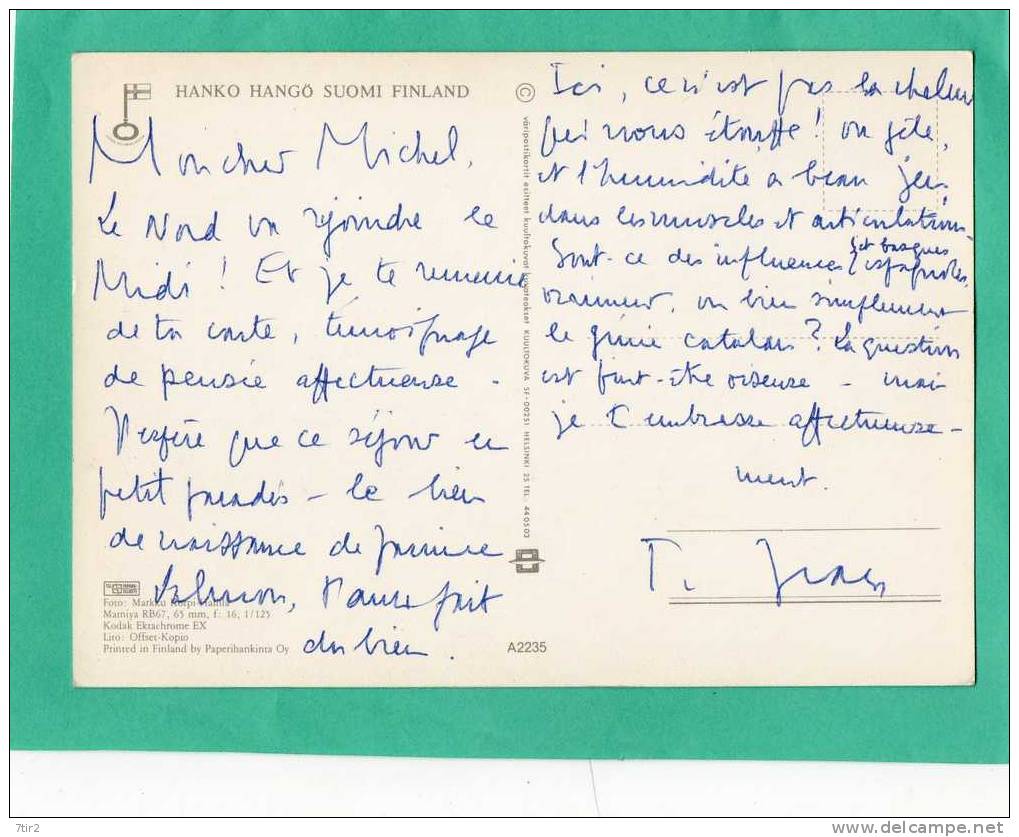 HANKO HANGÖ SUOMI FINLAND
Mon cher Michel,
Le Nord va rejoindre le
Midi ! Et je te remercie
de ta carte, témoignage
de pensée affectueuse.
J'espère que ce séjour en
petit paradis – le lieu
de naissance de
Salmon, t'aura fait
du bien.
Foto: Markku
Mamiya RB67, 65 mm, f: 16, 1/125
Kodak Ektachrome EX
Lito: Offset-Kopio
Printed in Finland by Paperihankinta Oy
A2235
©
väripostikortit esitteet kuultokuvat kuvateokset KUULTOKUVA SF-00251 HELSINKI 25 TEL. 440503
Ici, ce n'est pas la chaleur
qui nous étouffe ! on gèle,
et l'humidité a beau jeu
dans les muscles et articulations.
Sont-ce des influences espagnoles,
et basques
vraiment, ou bien simplement
le génie catalan ? La question
est peut-être oiseuse – mais
je t'embrasse affectueuse-
ment.
7tir2
www.delcampe.net